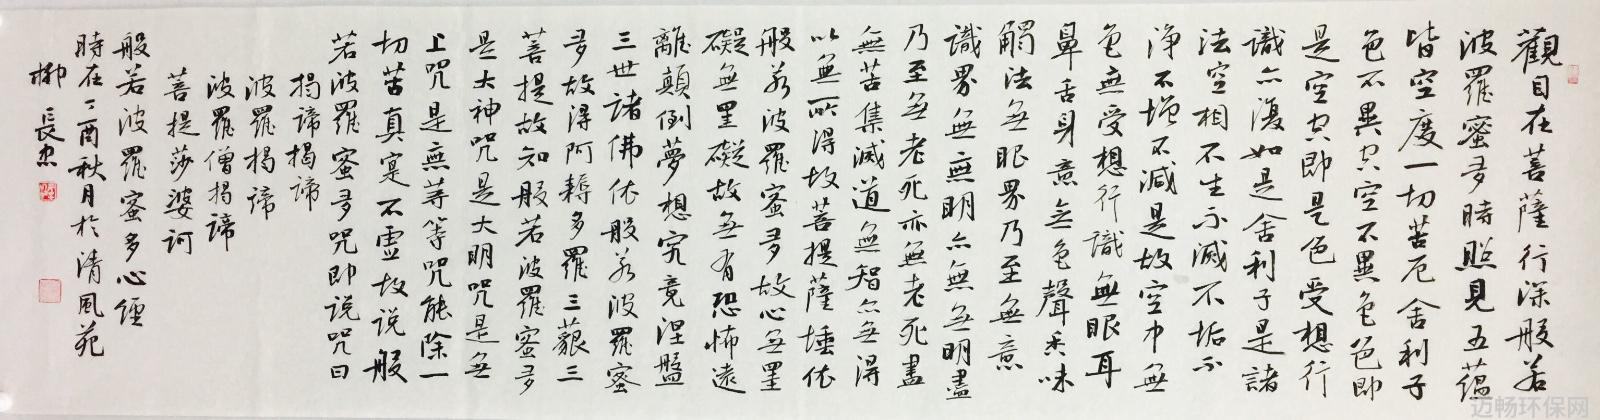 觀自在菩薩行深般若
波羅蜜多時照見五蘊
皆空度一切苦厄舍利子
色不異空空不異色色即
是空空即是色受想行
識亦復如是舍利子是諸
法空相不生不滅不垢不
淨不增不減是故空中無
色無受想行識無眼耳
鼻舌身意無色聲香味
觸法無眼界乃至無意
識界無無明亦無無明盡
乃至無老死亦無老死盡
無苦集滅道無智亦無得
以無所得故菩提薩埵依
般若波羅蜜多故心無罣
礙無罣礙故無有恐怖遠
離顛倒夢想究竟涅盤
三世諸佛依般若波羅蜜
多故得阿耨多羅三藐三
菩提故知般若波羅蜜多
是大神咒是大明咒是無
上咒是無等等咒能除一
切苦真實不虛故说般
若波羅蜜多咒即说咒曰
揭諦揭諦
波羅揭諦
波羅僧揭諦
菩提莎婆訶
般若波羅蜜多心經
時在丁酉秋月於清風苑
柳長忠
迈畅环保网